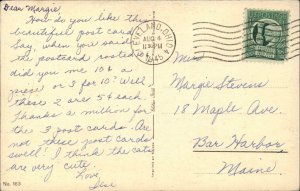 Dear Margie
How do you like this
beautiful post card
Say, when you said
the postcards posted
did you me 10¢ a
piece or 3 for 10? Will
these 2 are 5¢ each
Thanks a million for
the 3 post cards. Are
not these post cards
swell! I think the cats
are very cute.
Love,
No. 163
CLEVELAND, OHIO
AUG 4
PM
1945
Miss
Margie Stevens
18 Maple Ave
Bar Harbor
Maine